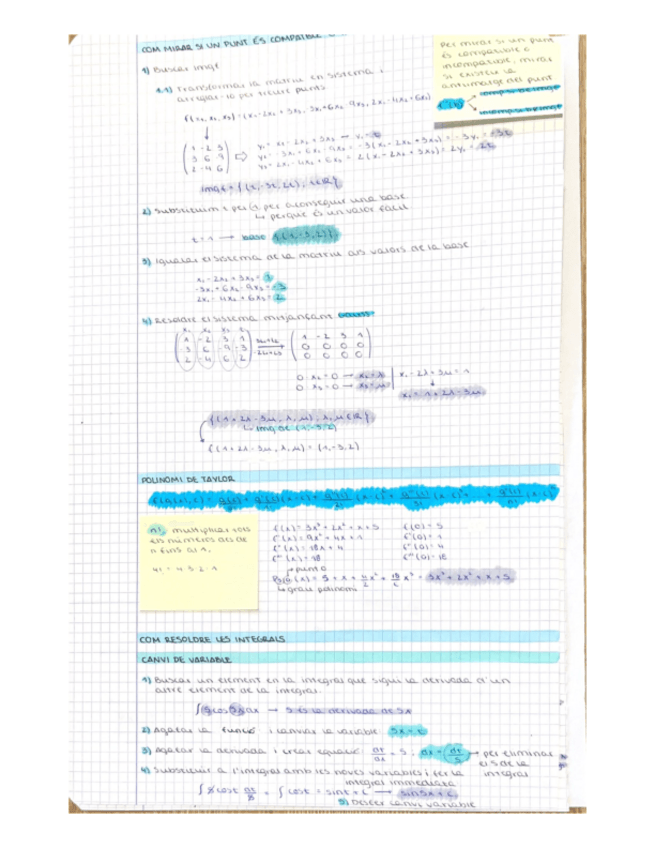 COM MIRAR SI UN PUNT ÉS COMPATIBLE O
Per mirar si un punt
és compatible o
incompatible, mirar
si existeix la
antiimatge del punt
1) Buscar imgf
1.1) Transformar la matriu en sistema i
arreglar-lo per treure punts
f(x₁, x₂, x₃) = (x₁ - 2x₂ + 3x₃, -3x₁ + 6x₂ - 9x₃, 2x₁ - 4x₂ + 6x₃)
y₁ = x₁ - 2x₂ + 3x₃ → y₁ = t
y₂ = -3x₁ + 6x₂ - 9x₃ = -3(x₁ - 2x₂ + 3x₃) = -3y₁ = -3t
y₃ = 2x₁ - 4x₂ + 6x₃ = 2(x₁ - 2x₂ + 3x₃) = 2y₁ = 2t
Imgf = {(t, -3t, 2t), t∈ℝ}
2) Substituim t per 1, per aconseguir una base
↳ perque és un valor fàcil
t = 1 → base {(1, -3, 2)}
3) Igualar el sistema de la matriu als valors de la base
x₁ - 2x₂ + 3x₃ = 1
-3x₁ + 6x₂ - 9x₃ = -3
2x₁ - 4x₂ + 6x₃ = 2
4) Resoldre el sistema mitjançant Gauss
x₁ x₂ x₃ t
1 -2 3 1
-3 6 -9 -3
2 -4 6 2
1 -2 3 1
0 0 0 0
0 0 0 0
0·x₂ = 0 → x₂ = λ
0·x₃ = 0 → x₃ = μ
x₁ - 2λ + 3μ = 1
x₁ = 1 + 2λ - 3μ
{(1 + 2λ - 3μ, λ, μ), λ, μ∈ℝ}
↳ img de (1, -3, 2)
f(1 + 2λ - 3μ, λ, μ) = (1, -3, 2)
POLINOMI DE TAYLOR
n!, multiplicar tots
els números des de
n fins al 1.
4! = 4·3·2·1
f(x) = 3x³ + 2x² + x + 5 f(0) = 5
f'(x) = 9x² + 4x + 1 f'(0) = 1
f''(x) = 18x + 4 f''(0) = 4
f'''(x) = 18 f'''(0) = 18
↗ punt 0
↳ grau polinomi
COM RESOLDRE LES INTEGRALS
CANVI DE VARIABLE
1) Buscar un element en la integral que sigui la derivada d'un
altre element de la integral.
∫5cos5x dx → 5 és la derivada de 5x
2) Agafar la funció i canviar la variable: 5x = t
3) Agafar la derivada i crear equació: dt/dx = 5 → dx = dt/5 → per eliminar
el 5 de la
integral
4) Substituir a l'integral amb les noves variables i fer la
integral immediata
∫5cost dt/5 = ∫cost = sint + C → sin5x + C
5) Desfer canvi variable